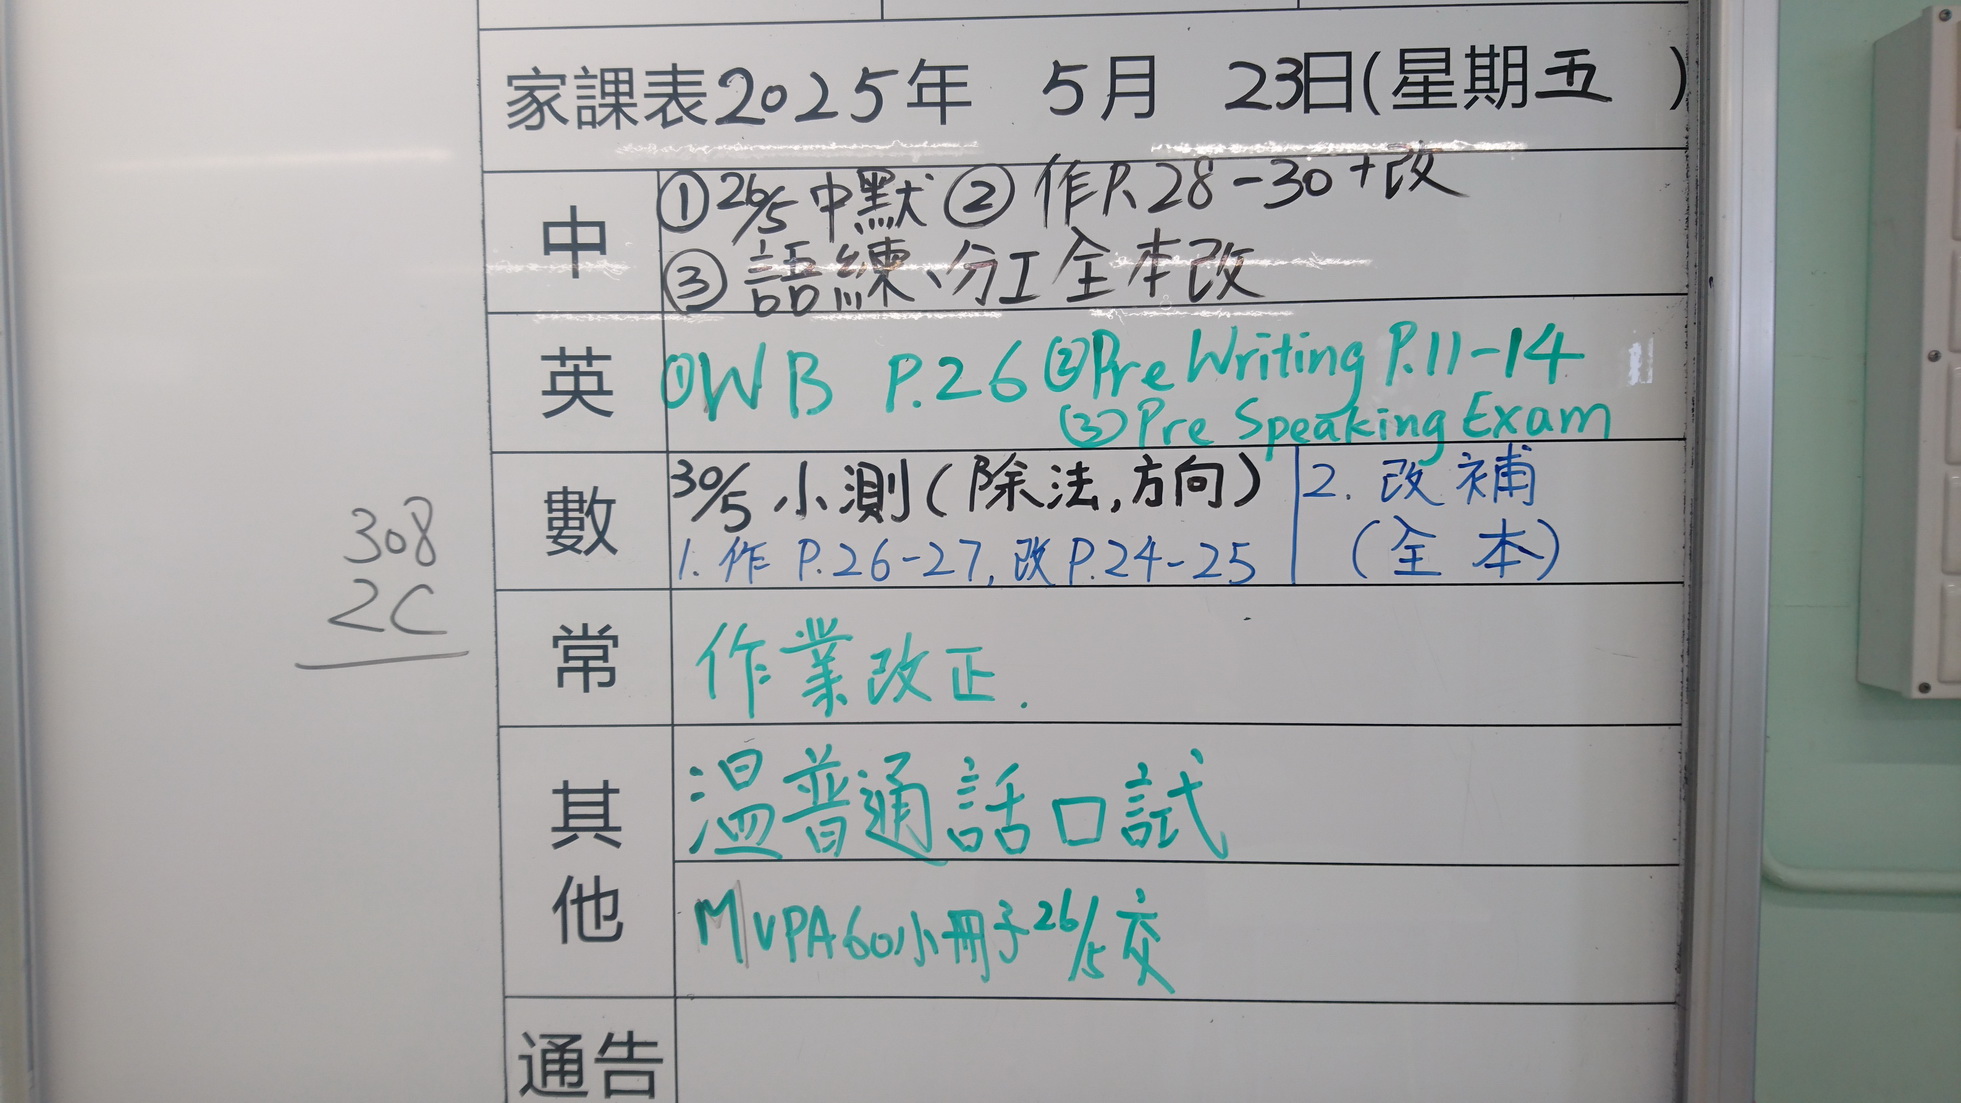 家課表2025年 5月 23日(星期五 )
中
①26/5中默②作P.28-30+改
③語練、分工全本改
英
①WB P.26②Pre Writing P.11-14
③Pre Speaking Exam
數
30/5小測(除法,方向)
1.作P.26-27,改P.24-25
2.改補
(全本)
308
2C
常
作業改正.
其他
溫普通話口試
MVPA60小冊子26/5交
通告